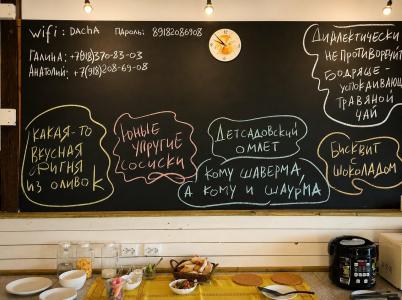 WiFi: DACHA Пароль: 89182086908
ГАЛИНА: +7(918)370-83-03
АНАТОЛИЙ: +7(918)208-69-08
ДИАЛЕКТИЧЕСКИ
НЕПРОТИВОРЕЧИВЫЙ
БОДРЯЩЕ-
УСПОКАИВАЮЩИЙ
ТРАВЯНОЙ
ЧАЙ
КАКАЯ-ТО
ВКУСНАЯ
ФИГНЯ
ИЗ ОЛИВОК
ЮНЫЕ
УПРУГИЕ
СОСИСКИ
ДЕТСАДОВСКИЙ
ОМЛЕТ
КОМУ ШАВЕРМА,
А КОМУ И ШАУРМА
БИСКВИТ
С
ШОКОЛАДОМ